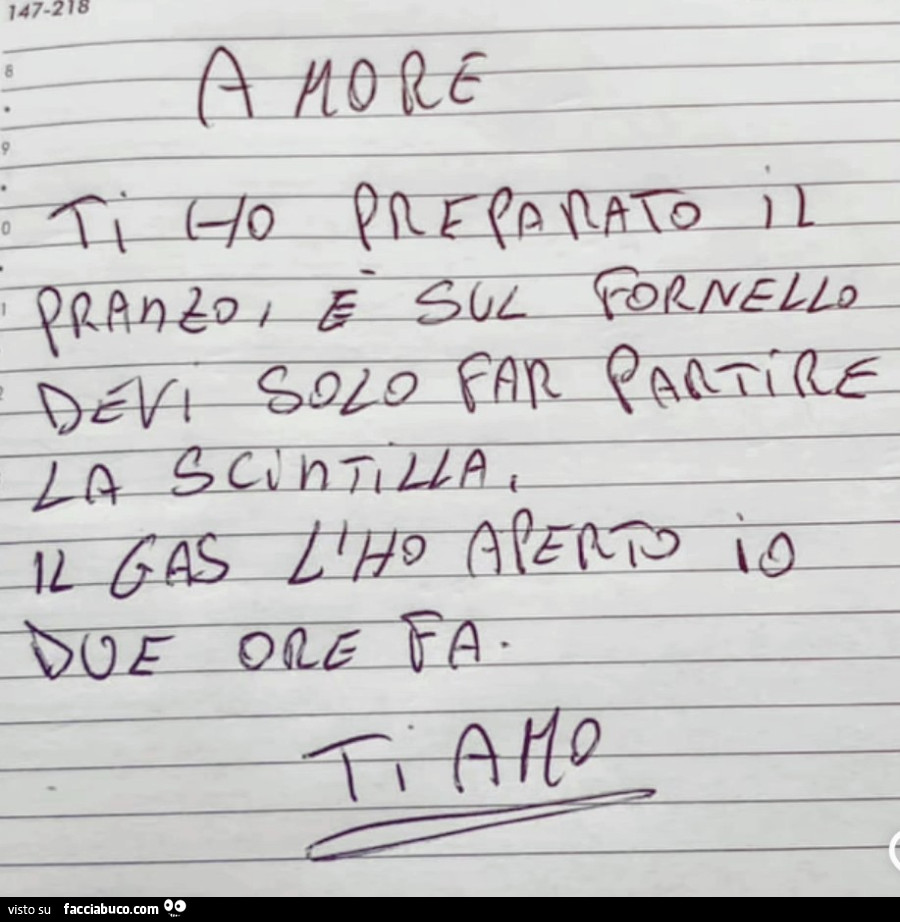 147-218
8
9
0
1
2
A MORE
Ti HO PREPARATO iL
PRANZO, È SUL FORNELLO
DEVi SOLO FAR PARTiRE
LA SCiNTiLLA.
IL GAS L'HO APERTO iO
DUE ORE FA.
Ti AMO
visto su facciabuco.com